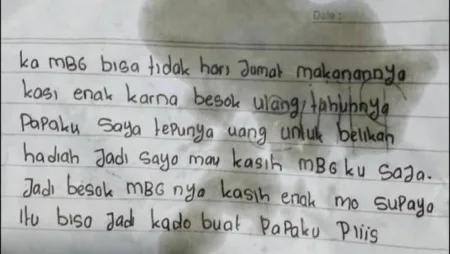 Date:
ka MBG bisa tidak hari Jumat makanannya
kasi enak karna besok ulang tahunnya
Papaku saya tepunya uang untuk belikan
hadiah Jadi saya mau kasih MBG ku saja.
Jadi besok MBG nya kasih enak mo supaya
itu bisa Jadi kado buat Papaku Pliis